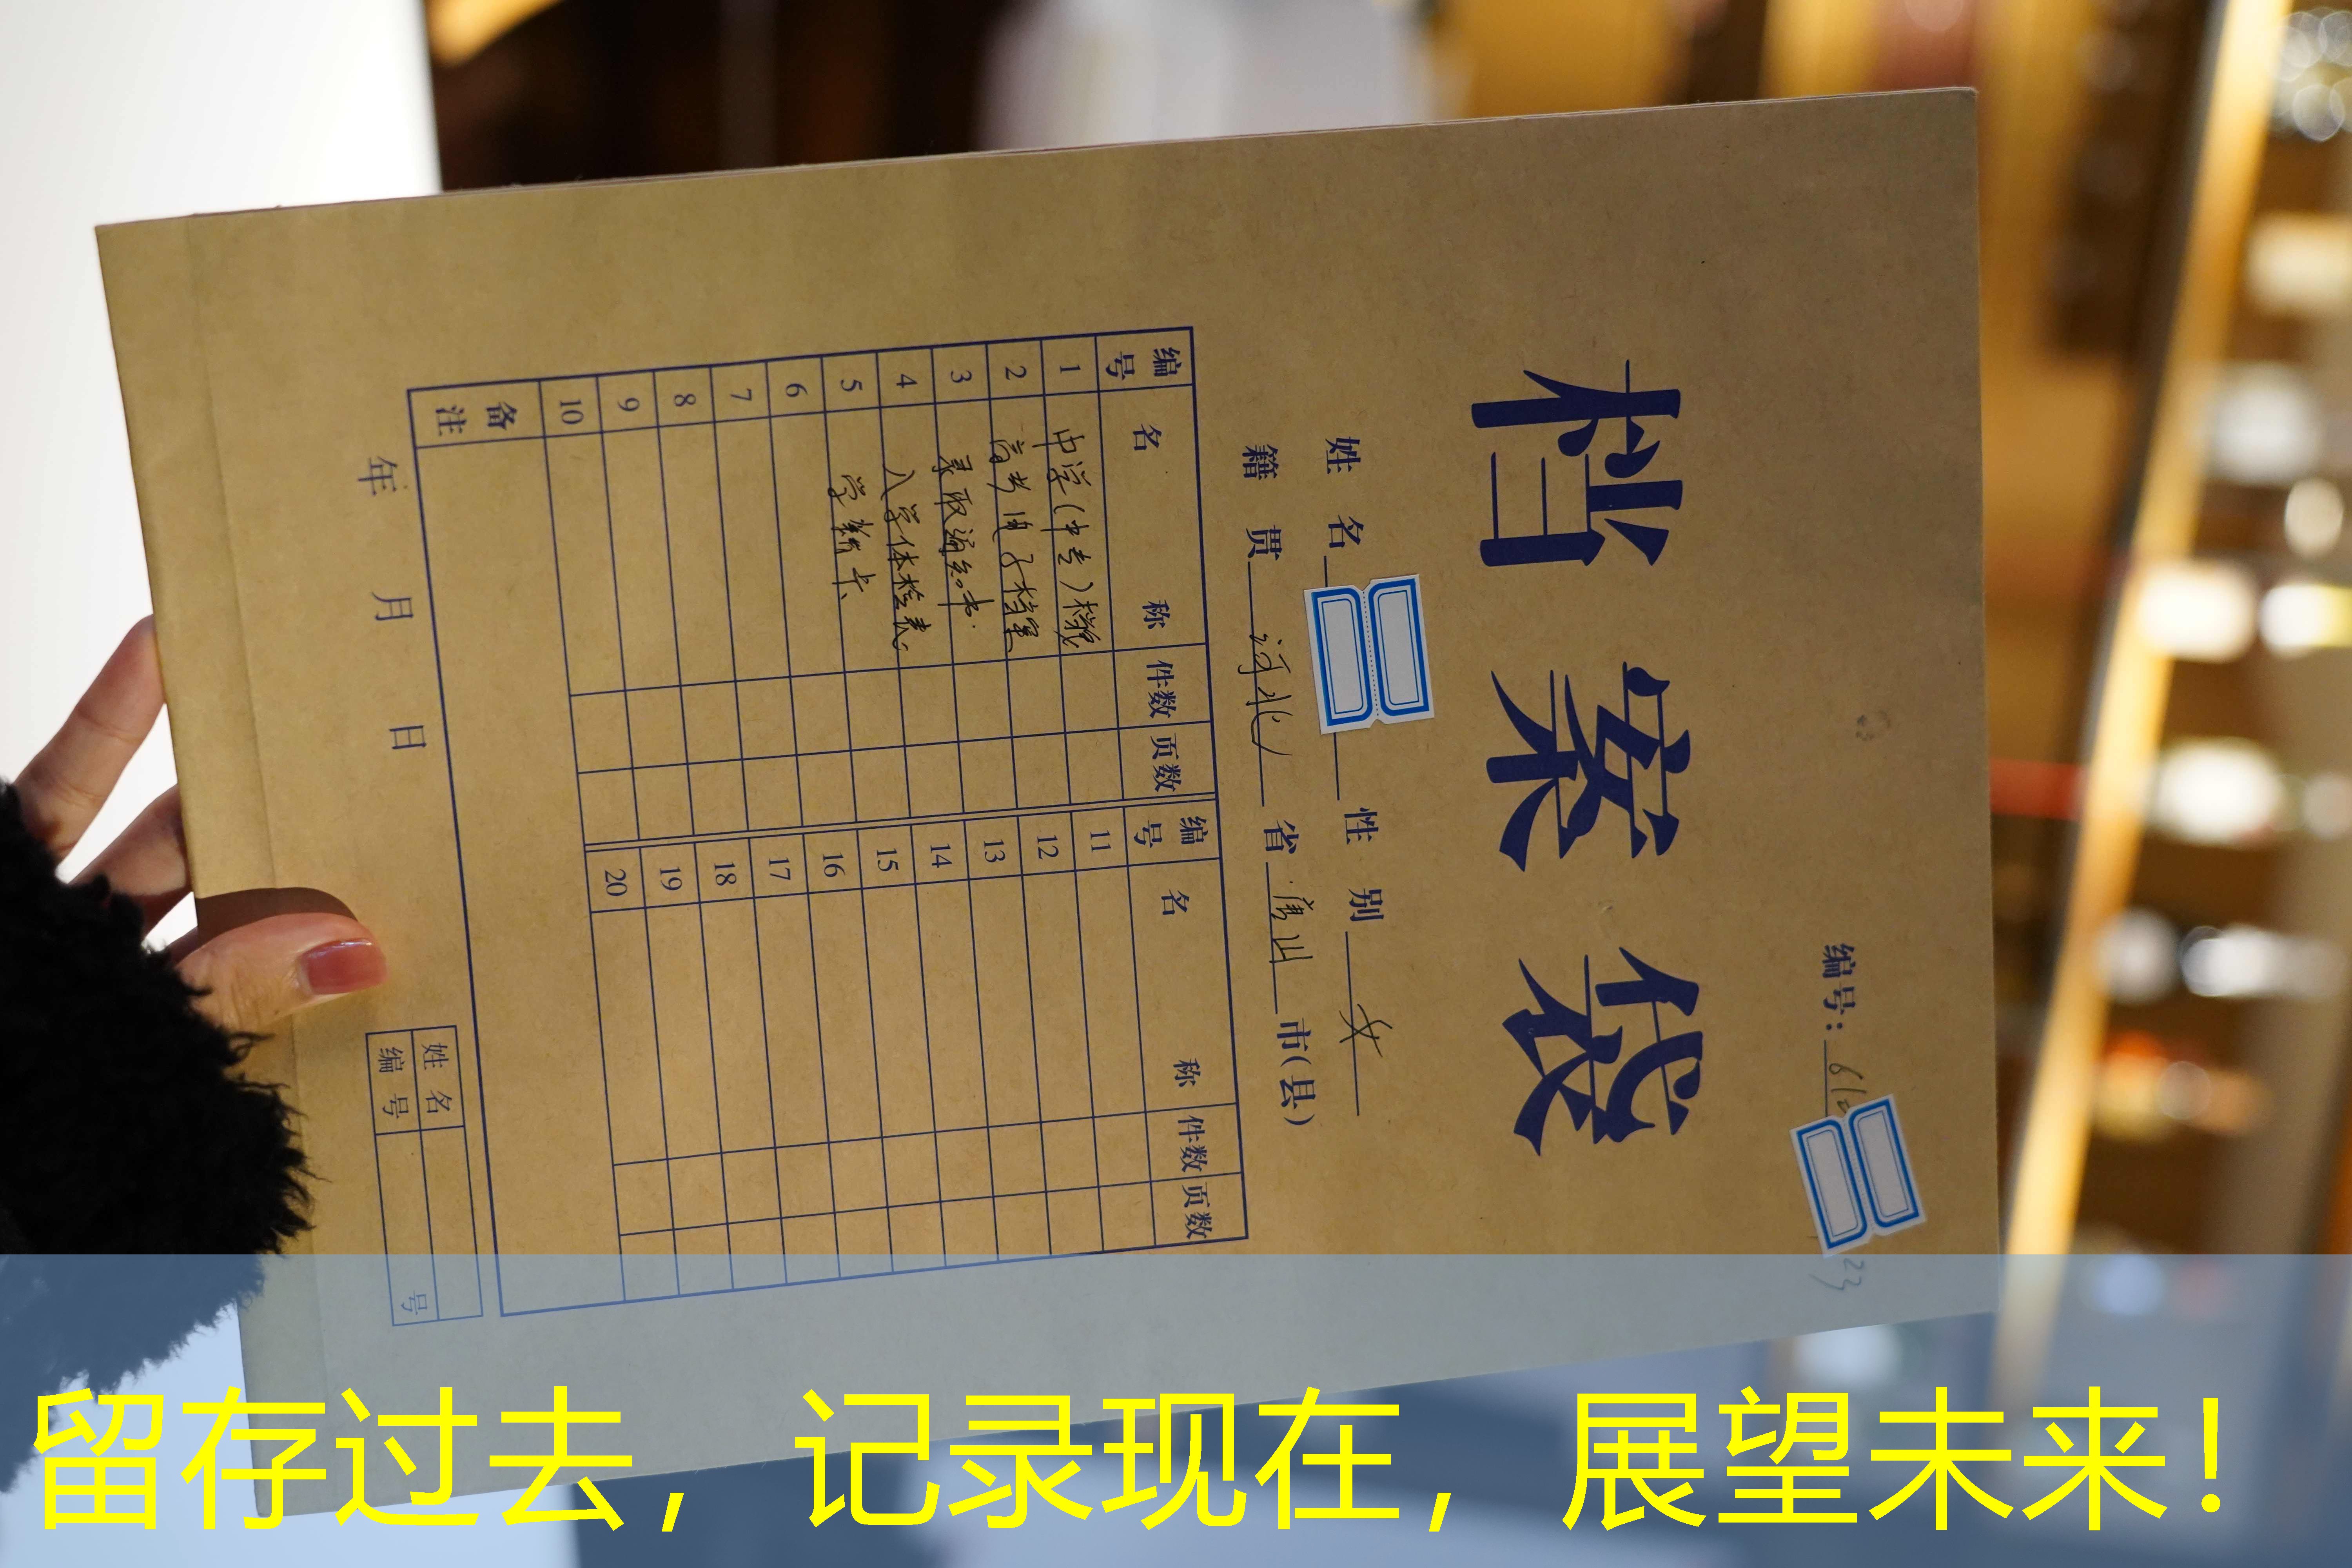 编号：
档案袋
姓名 性别 女
籍贯 河北 省 唐山 市(县)
编号 名称 件数 页数 编号 名称 件数 页数
1 中学(中专)档案 11
2 高考电子档案 12
3 录取通知书 13
4 入学体检表 14
5 学籍卡 15
6 16
7 17
8 18
9 19
10 20
备注
年 月 日
姓名
编号 号
留存过去，记录现在，展望未来！